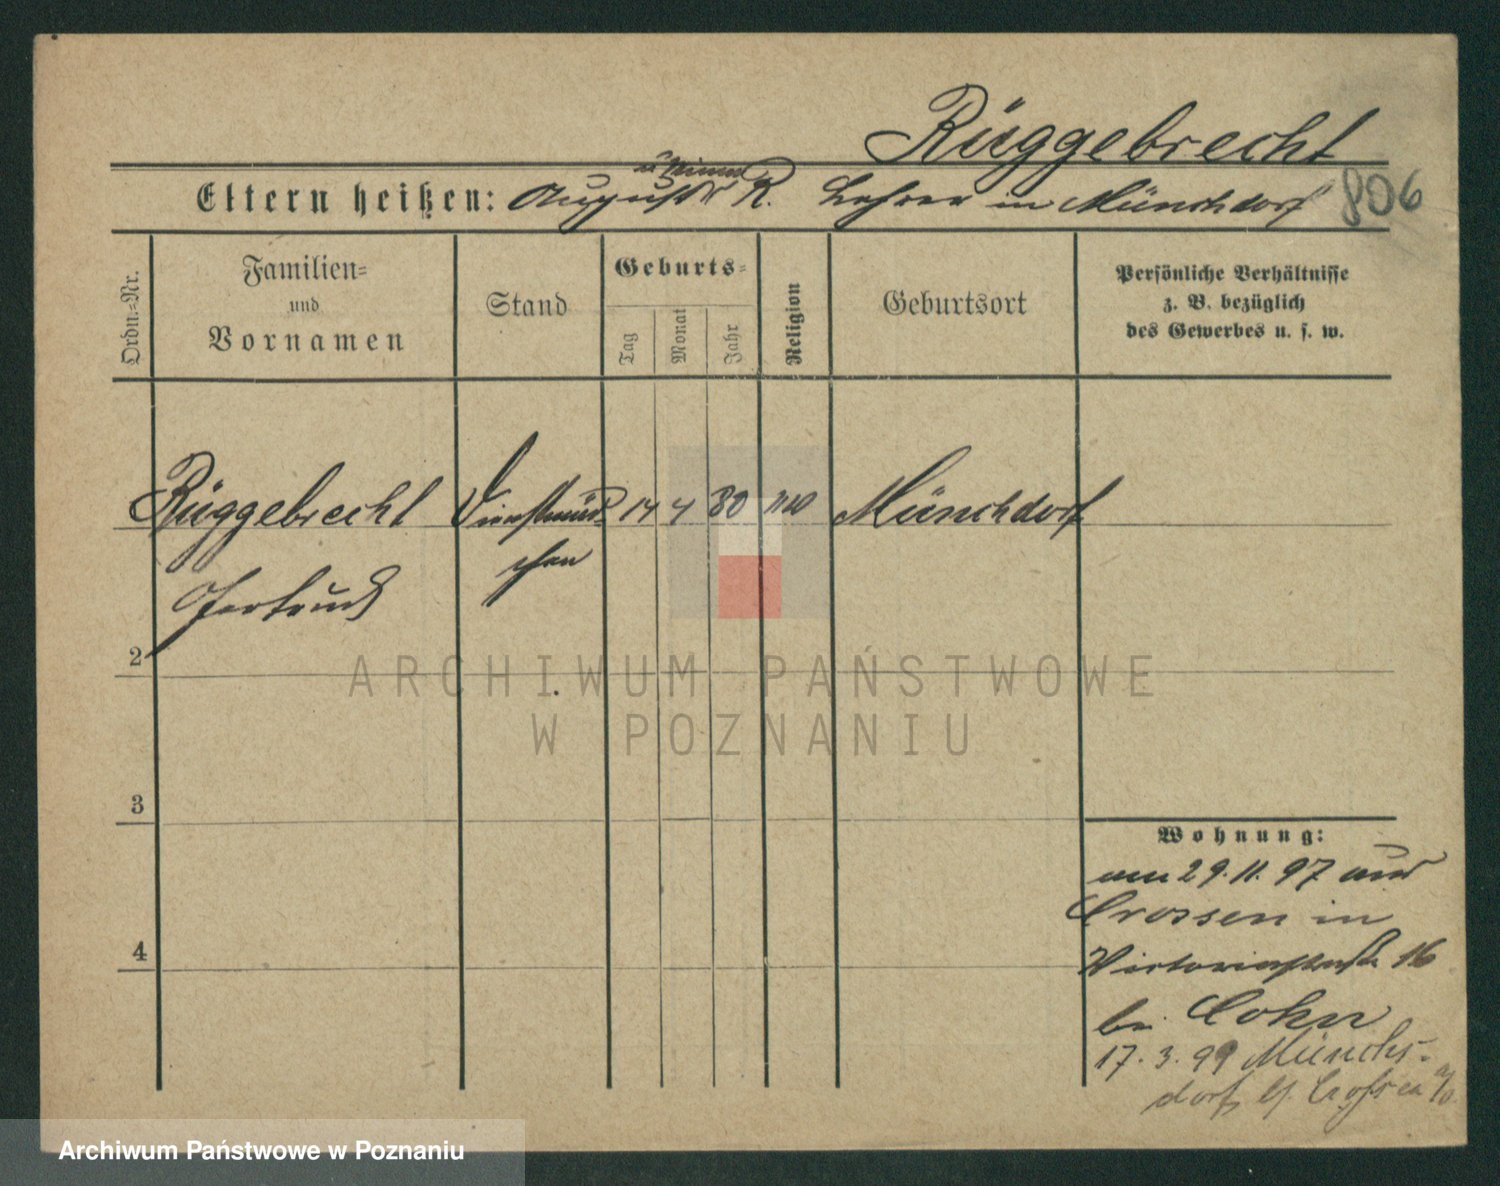 Rüggebrecht
Eltern heißen: August R. Lehrer in Münchdorf 806
Ordn.=Nr.
Familien=
und
Vornamen
Stand
Geburts=
Tag
Monat
Jahr
Religion
Geburtsort
Persönliche Verhältnisse
z. B. bezüglich
des Gewerbes u. s. w.
Rüggebrecht Dienstmäd- 14 4 80 Münchdorf
Gertrud chen
2
ARCHIWUM PAŃSTWOWE
W POZNANIU
3
4
Wohnung:
am 29.11.97 aus
Crossen in
Victoriastraße 16
bei Cohn
17.3.99 Münchs-
dorf Crossen a/O.
Archiwum Państwowe w Poznaniu